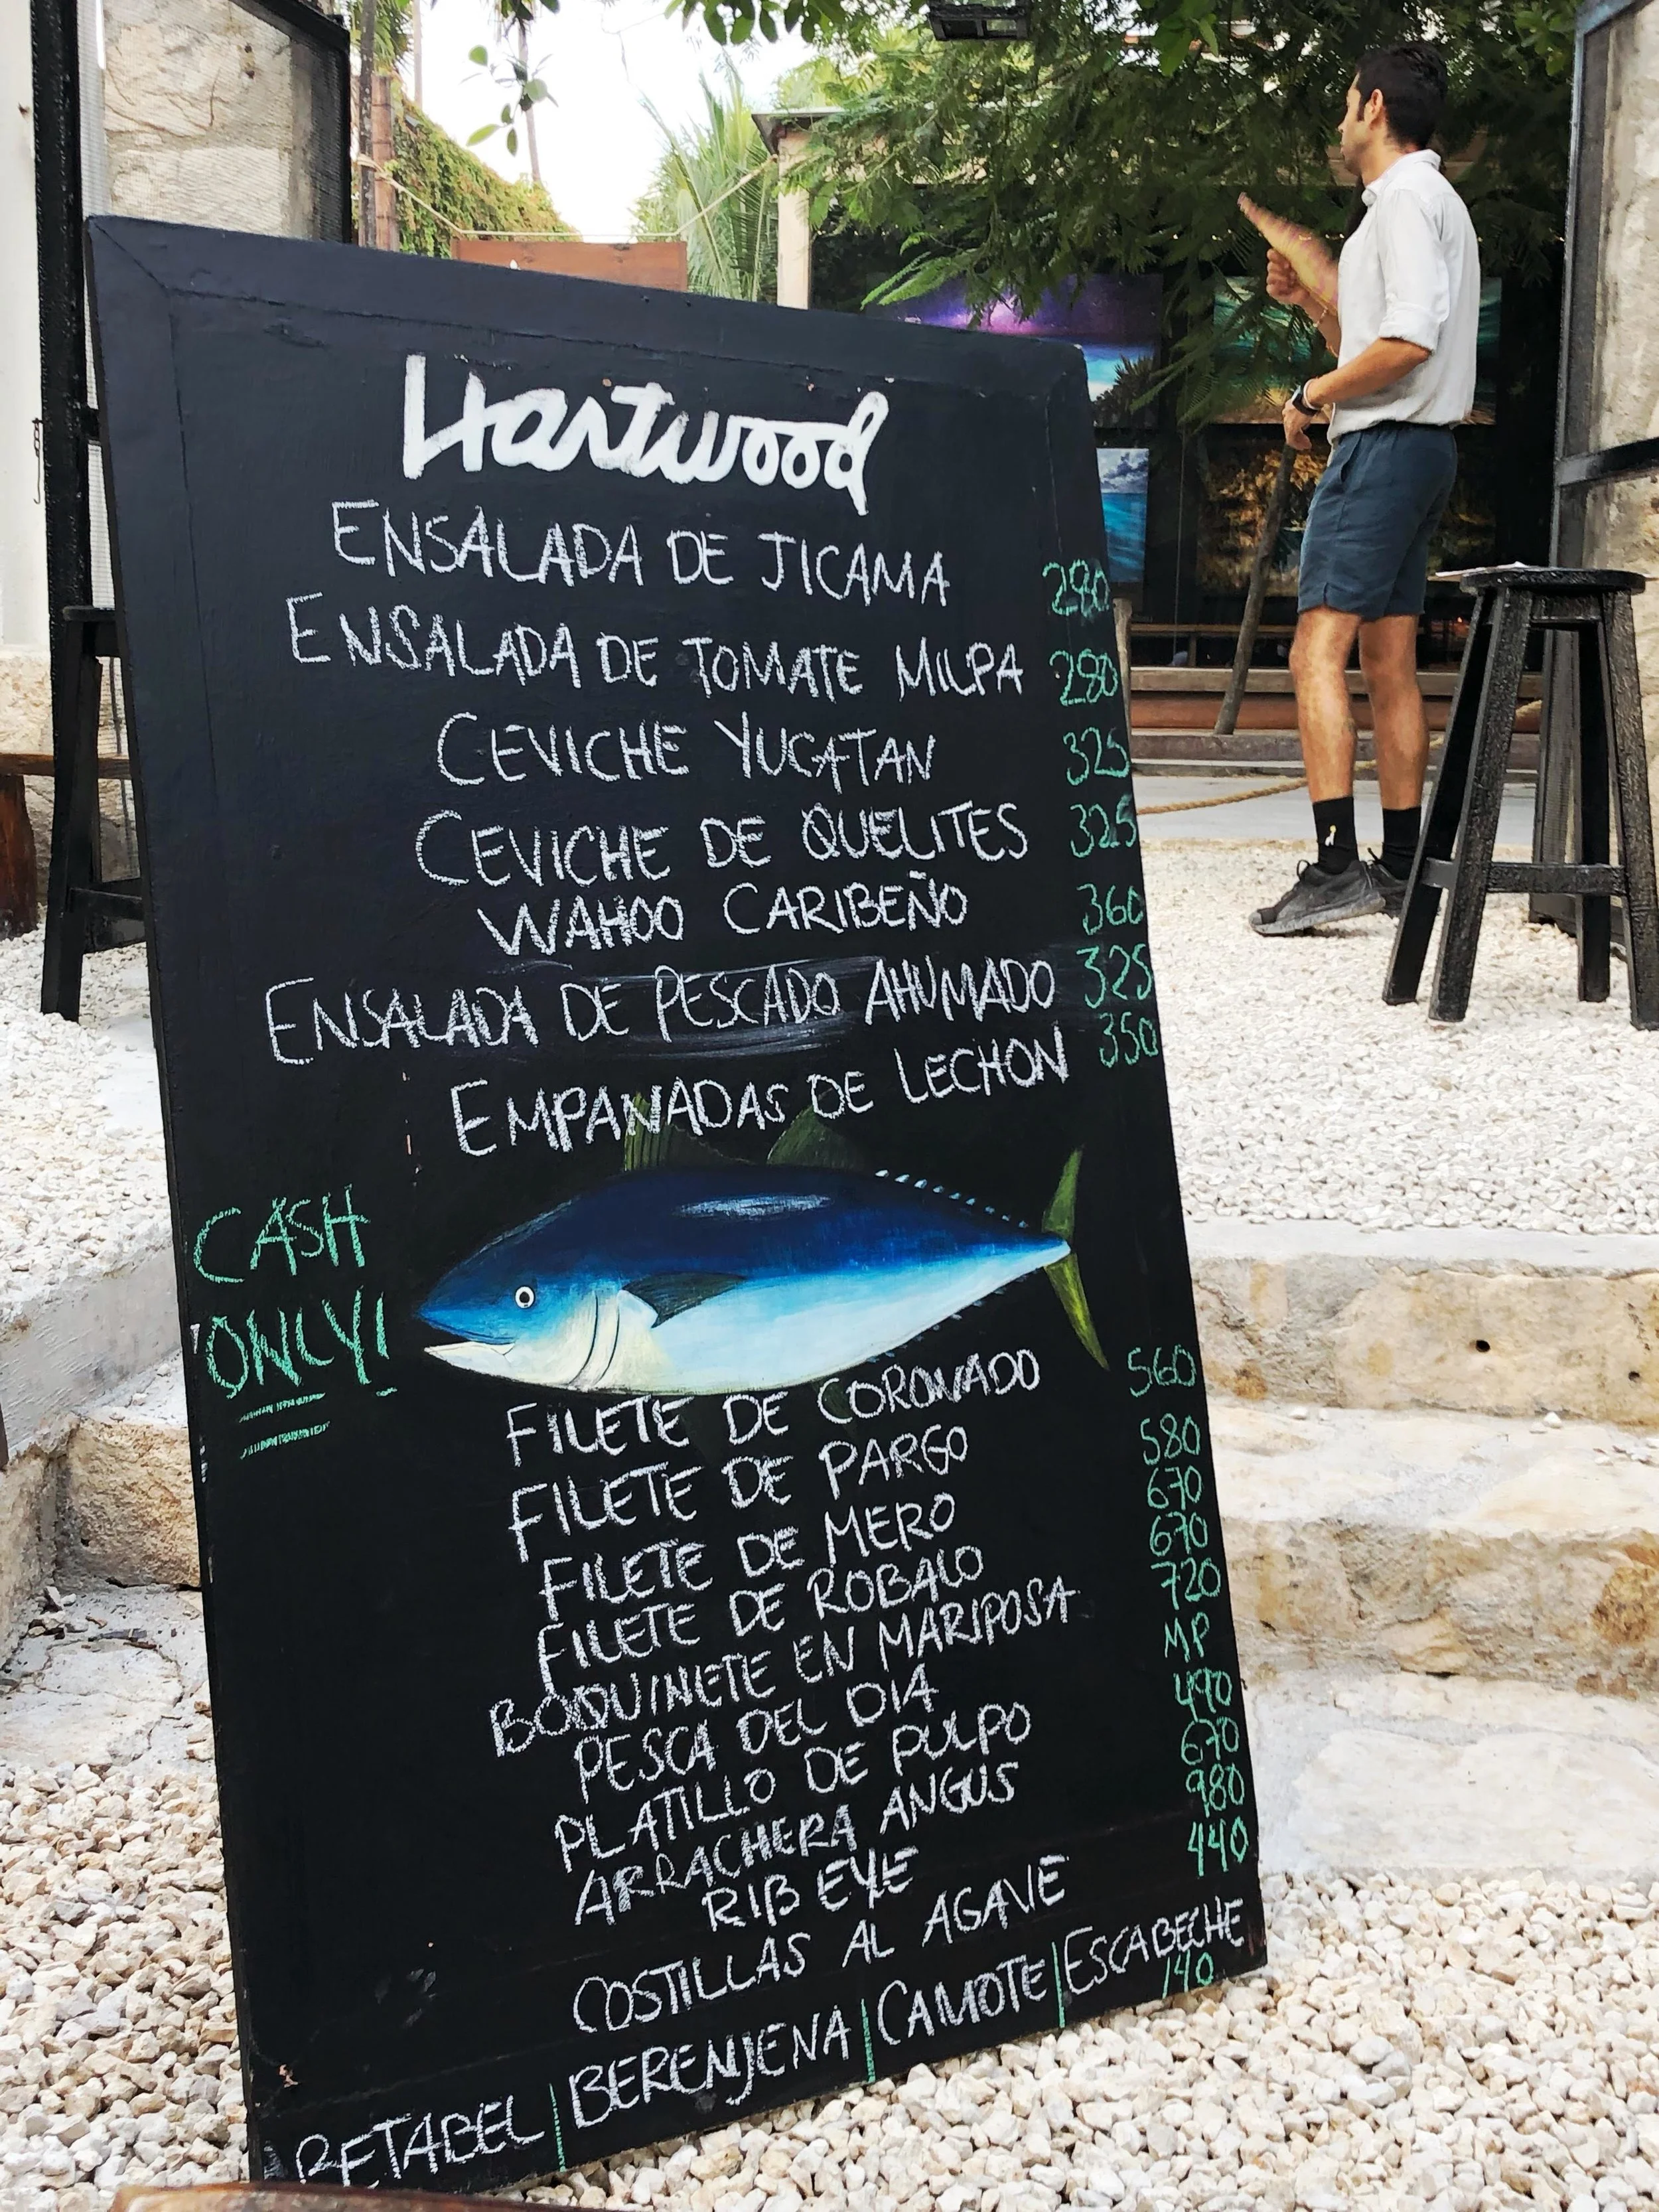 Hartwood
ENSALADA DE JICAMA 280
ENSALADA DE TOMATE MILPA 280
CEVICHE YUCATAN 325
CEVICHE DE QUELITES 325
WAHOO CARIBEÑO 360
ENSALADA DE PESCADO AHUMADO 325
EMPANADAS DE LECHON 350
CASH
ONLY!
FILETE DE CORONADO 560
FILETE DE PARGO 580
FILETE DE MERO 670
FILETE DE ROBALO 670
BOQUINETE EN MARIPOSA 720
PESCA DEL DIA MP
PLATILLO DE PULPO 490
ARRACHERA ANGUS 670
RIB EYE 980
COSTILLAS AL AGAVE 440
BETABEL | BERENJENA | CAMOTE | ESCABECHE
140